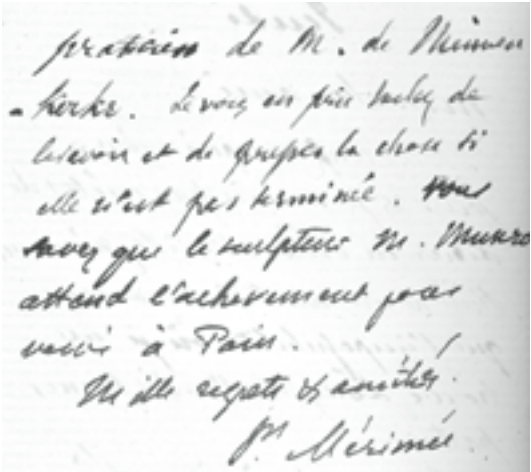 praticien de M. de Nieuwer
-kerke. Je vous en prie tachez de
le voir et de presser la chose si
elle n'est pas terminée. Vous
savez que le sculpteur M. Munro
attend l'achevement pour
venir à Paris.
Mille regrets & amitiés.
Pr Mérimée